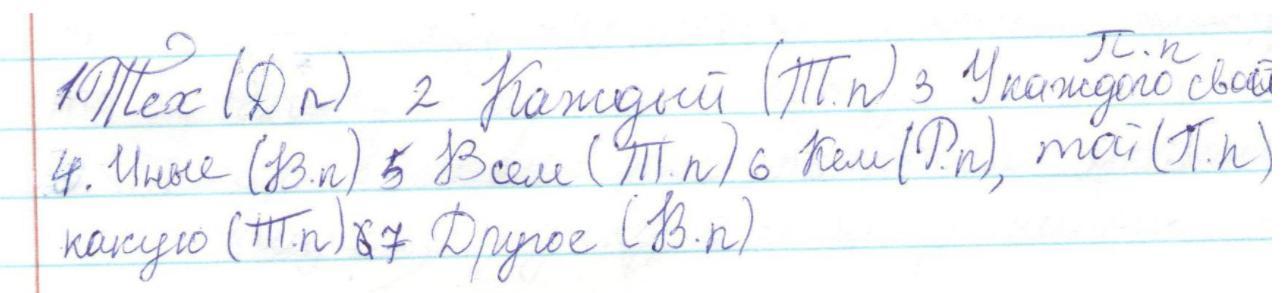 П.п
1 Тех (Д п) 2 Каждый (Т.п) 3 У каждого свой
4. Иные (В.п) 5 Всем (Т.п) 6 Кем (Р.п), той (П.п)
какую (Т.п) 7 Другое (В.п)